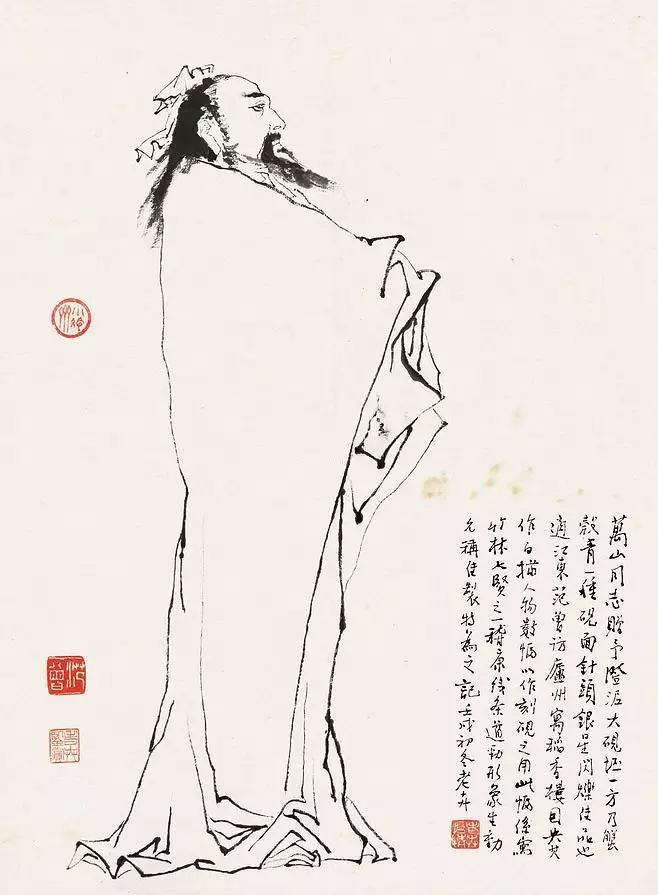 萬山同志贈予澄泥大硯坯一方乃蟹
殼青一種硯面針頭銀星閃爍佳品也
適江東范曾訪廬州寓稻香樓因央其
作白描人物數幀以作刻硯之用此幀係寫
竹林七賢之一稽康线条遒勁形象生動
允稱佳製特為之記壬戌初冬老卉
范曾